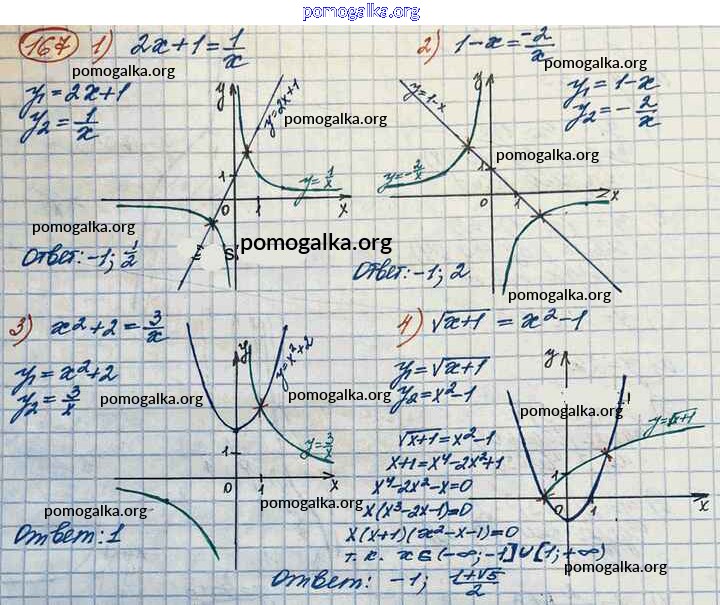 pomogalka.org
167 1) 2x+1=1/x
pomogalka.org
y₁=2x+1
y₂=1/x
y
y=2x+1
pomogalka.org
1
y=1/x
0 1 x
pomogalka.org
Ответ: -1; 1/2
pomogalka.org
2) 1-x=-2/x
pomogalka.org
y₁=1-x
y₂=-2/x
y
y=1-x
pomogalka.org
pomogalka.org
1
y=-2/x
0 1 x
Ответ: -1; 2
pomogalka.org
3) x²+2=3/x
y₁=x²+2
y₂=3/x
y
y=x²+2
pomogalka.org
pomogalka.org
1
y=3/x
0 1 x
pomogalka.org
pomogalka.org
Ответ: 1
4) √x+1 = x²-1
pomogalka.org
y₁=√x+1
y₂=x²-1
y
pomogalka.org
y=√x+1
1
0 1 x
√x+1=x²-1
x+1=x⁴-2x²+1
x⁴-2x²-x=0
x(x³-2x-1)=0
x(x+1)(x²-x-1)=0
т.к. x∈(-∞;-1]∪[1;+∞)
pomogalka.org
Ответ: -1; 1+√5/2